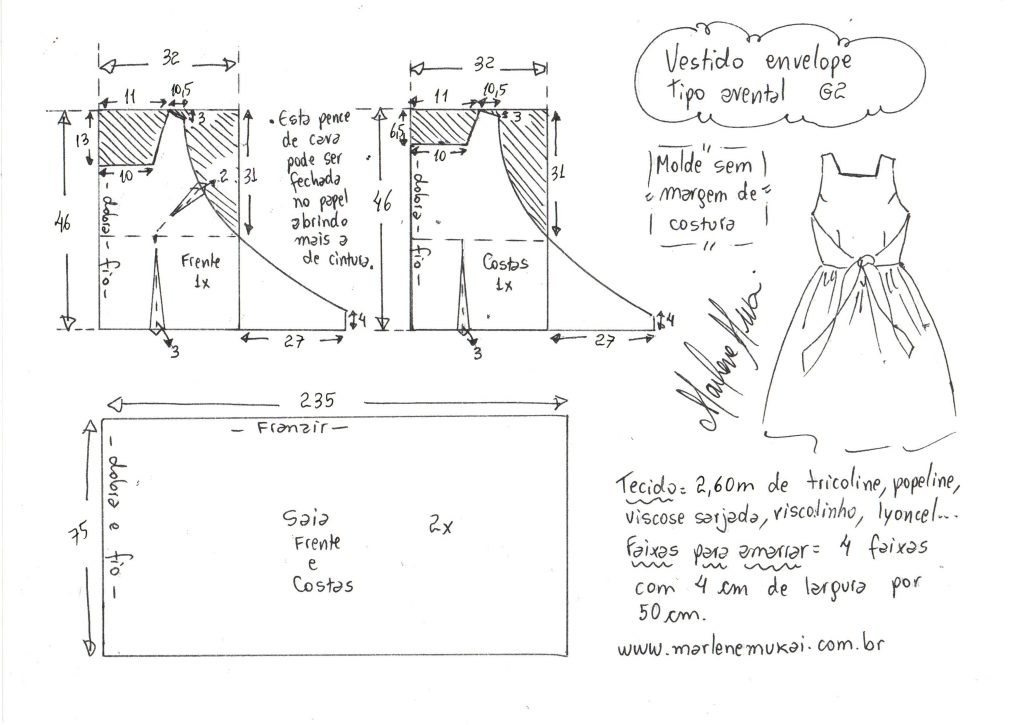 Vestido envelope
Tipo avental G2
"Molde sem
margem de
costura
"
32
11
10,5
3
13
10
2
31
46
dobra - fio -
Frente
1x
3
27
4
. Esta pence
de cava
pode ser
fechada
no papel
abrindo
mais a
de cintura.
32
11
10,5
3
6,5
10
31
46
dobra - fio -
Costas
1x
3
27
4
Marlene Mukai
235
- Franzir -
75
- dobra e fio -
Saia
Frente
e
Costas
2x
Tecido = 2,60m de tricoline, popeline,
viscose sarjada, viscolinho, lyoncel...
Faixas para amarrar = 4 faixas
com 4 cm de largura por
50 cm.
www.marlenemukai.com.br